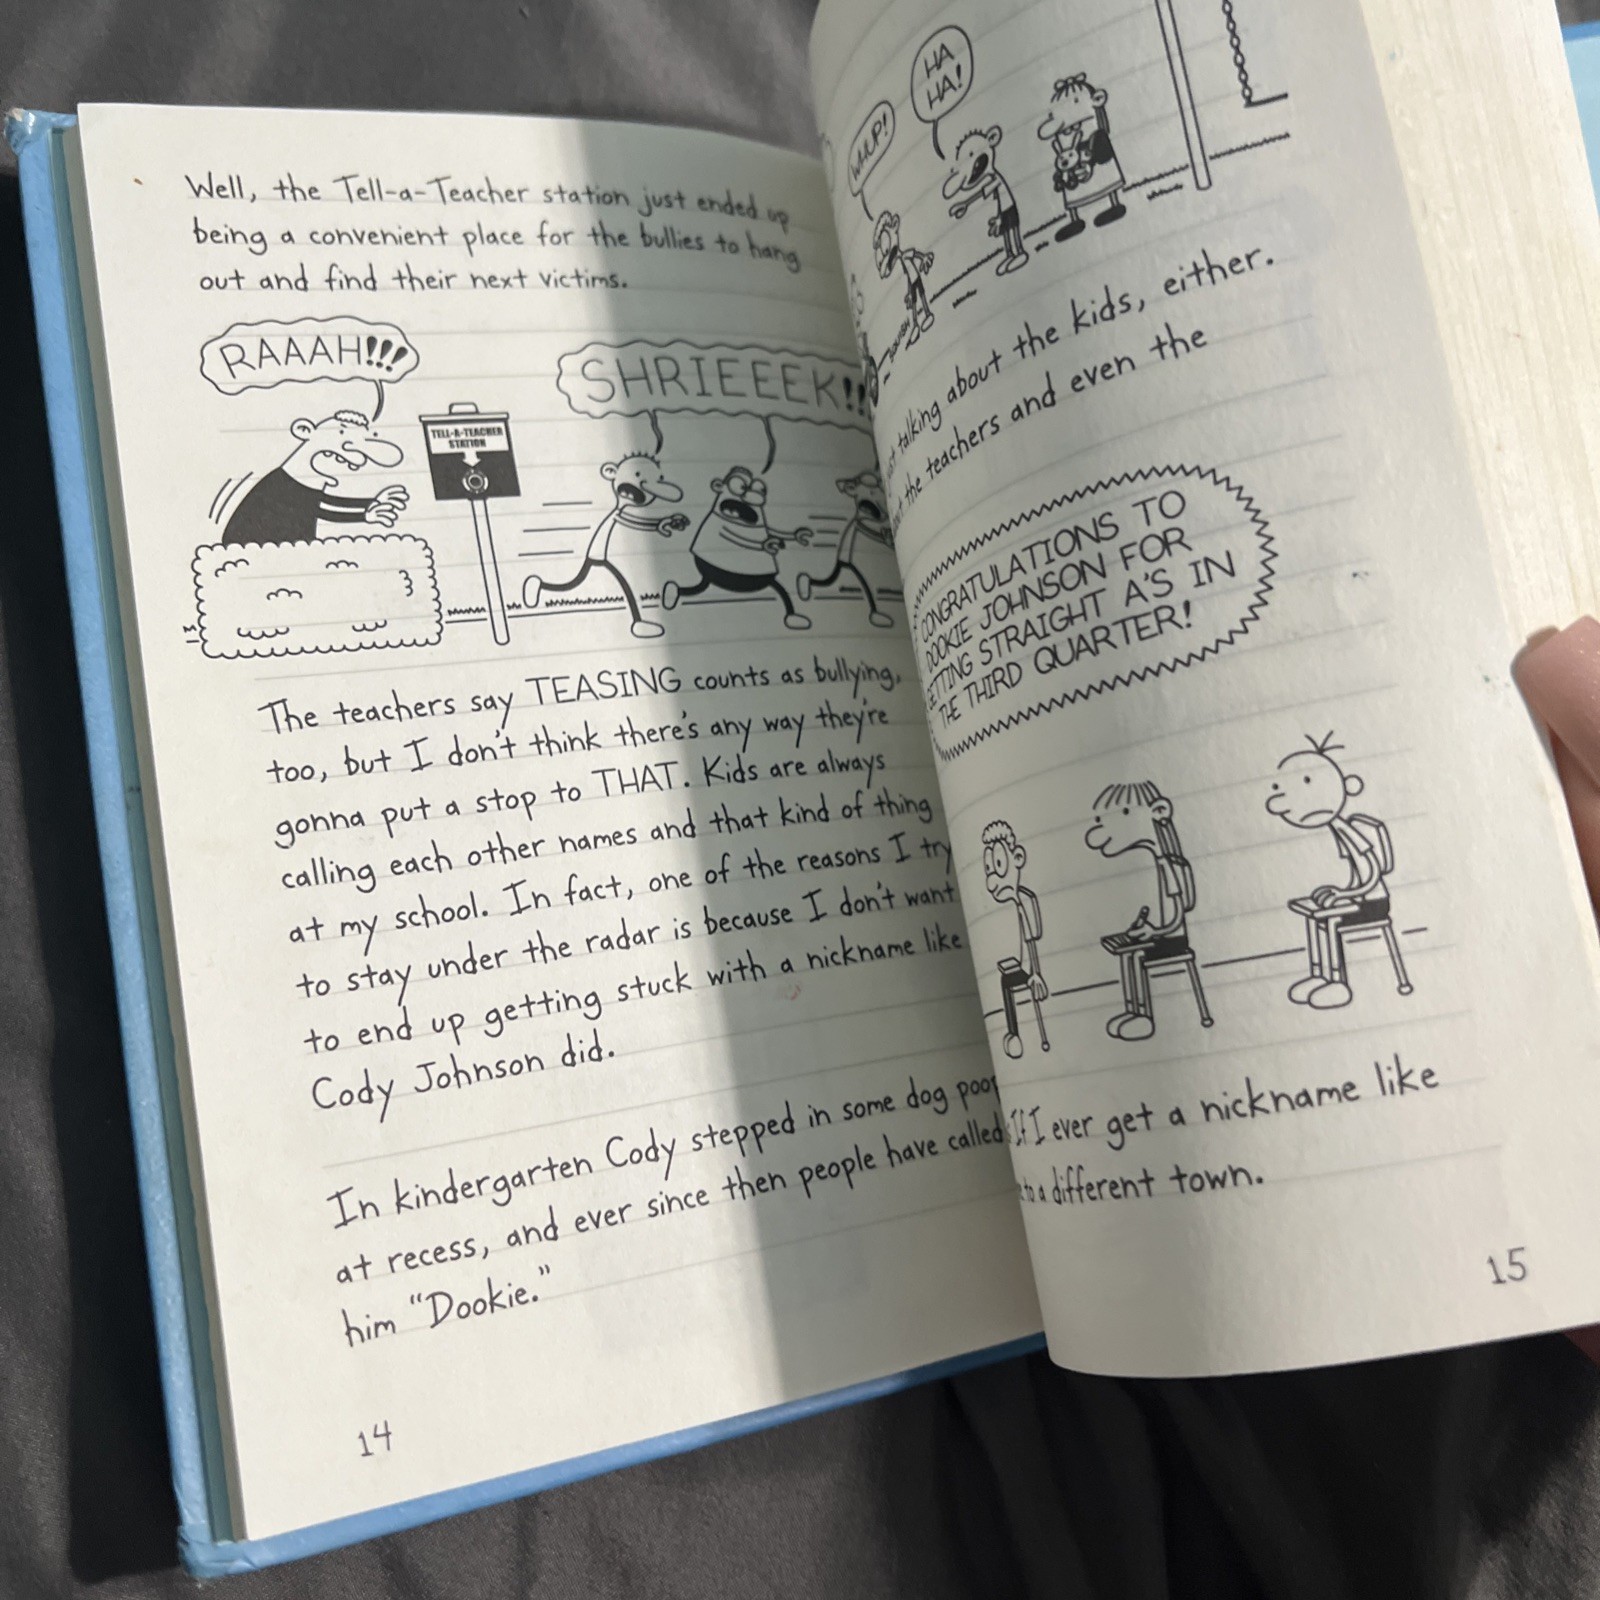 Well, the Tell-a-Teacher station just ended up
being a convenient place for the bullies to hang
out and find their next victims.
RAAAH!!!
SHRIEEEK!!
TELL-A-TEACHER
STATION
The teachers say TEASING counts as bullying,
too, but I don't think there's any way they're
gonna put a stop to THAT. Kids are always
calling each other names and that kind of thing
at my school. In fact, one of the reasons I try
to stay under the radar is because I don't want
to end up getting stuck with a nickname like
Cody Johnson did.
In kindergarten Cody stepped in some dog poop
at recess, and ever since then people have called
him "Dookie."
14
WHUP!
HA
HA!
talking about the kids, either.
the teachers and even the
CONGRATULATIONS TO
DOOKIE JOHNSON FOR
GETTING STRAIGHT A'S IN
THE THIRD QUARTER!
If I ever get a nickname like
to a different town.
15